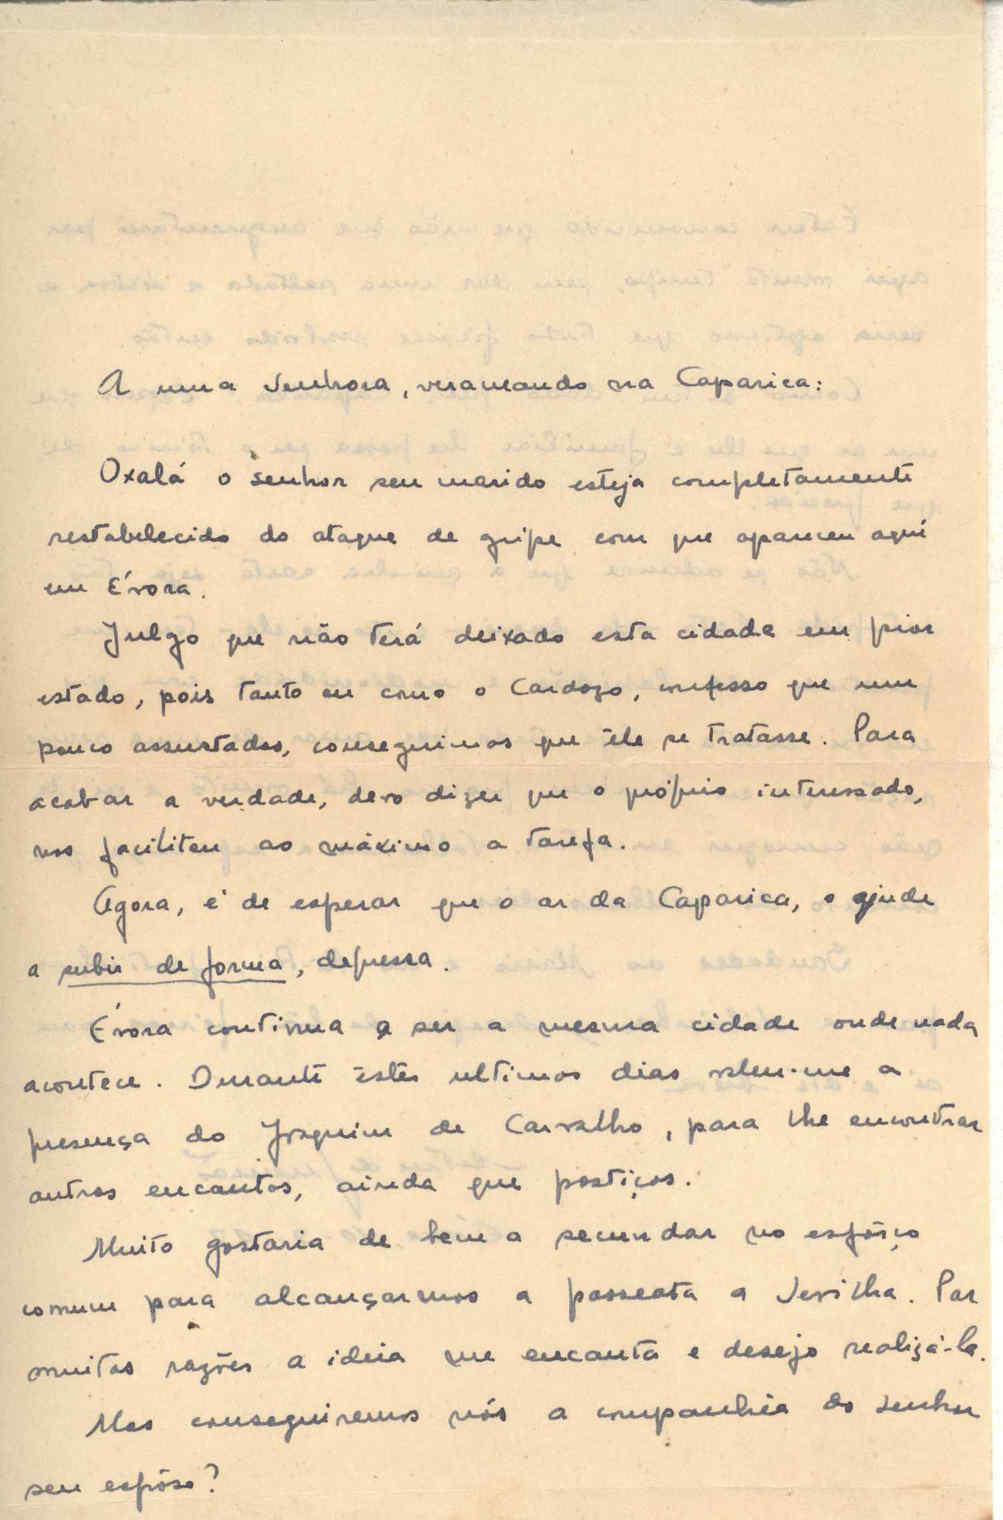 A uma Senhora, veraneando na Caparica:
Oxalá o senhor seu marido esteja completamente
restabelecido do ataque de gripe com que apareceu aqui
em Évora.
Julgo que não terá deixado esta cidade em pior
estado, pois tanto eu como o Cardozo, confesso que um
pouco assustados, conseguimos que êle se tratasse. Para
acabar a verdade, devo dizer que o próprio interessado,
nos facilitou ao máximo a tarefa.
Agora, é de esperar que o ar da Caparica, o ajude
a subir de forma, depressa.
Évora continua a ser a mesma cidade onde nada
acontece. Durante êstes ultimos dias valeu-me a
presença do Joaquim de Carvalho, para lhe encontrar
outros encantos, ainda que postiços.
Muito gostaria de bem a secundar no esfôrço
comum para alcançarmos a passeata a Sevilha. Por
muitas razões a ideia me encanta e desejo realizá-la.
Mas conseguiremos nós a companhia do senhor
seu espôso?